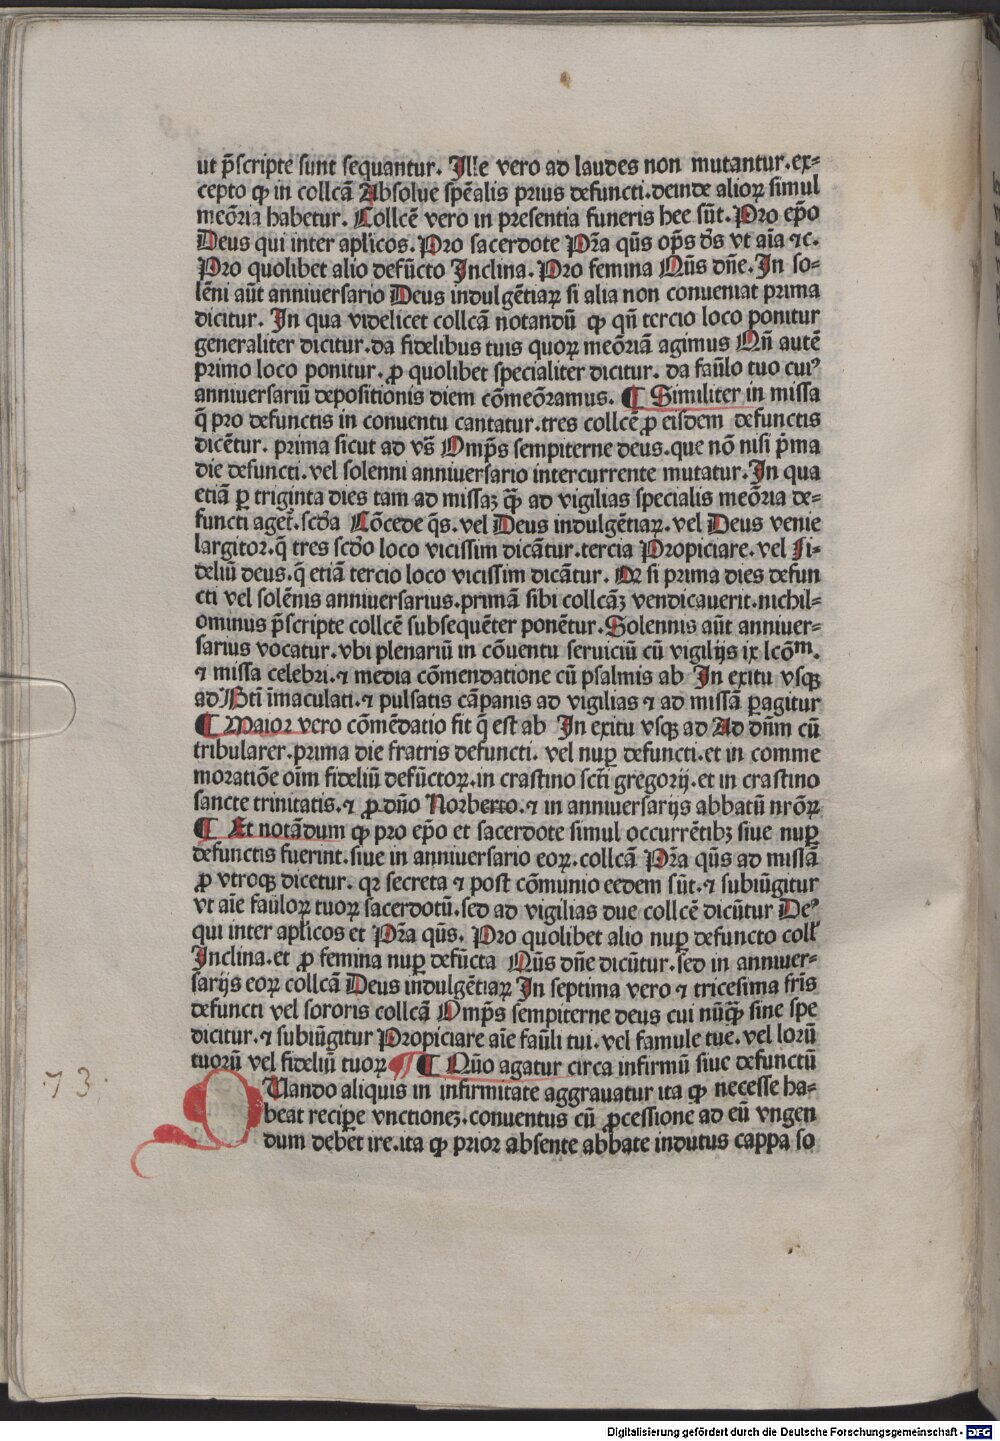 ut p̄scripte sunt sequantur. Ille vero ad laudes non mutantur.ex⸗
cepto ꝙ in collcā Absolue spēalis prius defuncti.deinde alioꝝ simul
meōria habetur. Collcē vero in presentia funeris hee sūt. Pro ep̄o
Deus qui inter aplicos. Pro sacerdote Pr̄a q̄us op̄s ds̄ vt aīa ⁊c.
Pro quolibet alio defūcto Inclina. Pro femina Nūs dn̄e. In so⸗
lēni aūt anniuersario Deus indulgētiaꝝ si alia non conueniat prima
dicitur. In qua videlicet collcā notandū ꝙ qn̄ tercio loco ponitur
generaliter dicitur.da fidelibus tuis quoꝝ meōriā agimus Qn̄ autē
primo loco ponitur. ꝓ quolibet specialiter dicitur. da faūlo tuo cuiꝰ
anniuersariū depositionis diem cōmeōramus. ¶ Similiter in missa
q̄ pro defunctis in conuentu cantatur.tres collcē ꝓ eisdem defunctis
dicētur. prima sicut ad vs̄ Omp̄s sempiterne deus.que nō nisi p̄ma
die defuncti.vel solenni anniuersario intercurrente mutatur. In qua
etiā ꝑ triginta dies tam ad missaꝫ q̄ꝫ ad vigilias specialis meōria de⸗
functi aget᷑.scd̄a Cōcede q̄s. vel Deus indulgētiaꝝ. vel Deus venie
largitor.q̄ tres scd̄o loco vicissim dicātur.tercia Propiciare. vel Fi⸗
deliū deus.q̄ etiā tercio loco vicissim dicātur. Qꝛ si prima dies defun
cti vel solēnis anniuersarius.primā sibi collcāꝫ vendicauerit.nichil⸗
ominus p̄scripte collcē subsequēter ponētur. Solennis aūt anniuer⸗
sarius vocatur.vbi plenariū in cōuentu seruiciū cū vigilijs ix lcōm̄.
⁊ missa celebri.⁊ media cōmendatione cū psalmis ab In exitu vsqꝫ
ad Bti īmaculati.⁊ pulsatis cāpanis ad vigilias ⁊ ad missā ꝑagitur
¶ Maior vero cōmēdatio fit q̄ est ab In exitu vsqꝫ ad Ad dn̄m cū
tribularer.prima die fratris defuncti. vel nuꝑ defuncti.et in comme
moratiōe oīm fideliū defūctoꝝ.in crastino scti gregorij.et in crastino
sancte trinitatis.⁊ ꝓ dn̄o Norberto.⁊ in anniuersarijs abbatū nr̄oꝝ
¶ Et notādum ꝙ pro ep̄o et sacerdote simul occurrētibꝫ siue nuꝑ
defunctis fuerint.siue in anniuersario eoꝝ.collcā Pr̄a q̄us ad missā
ꝓ vtroqꝫ dicetur. qꝛ secreta ⁊ post cōmunio eedem sūt.⁊ subiūgitur
vt aīe faūloꝝ tuoꝝ sacerdotū.sed ad vigilias due collcē dicūtur Deꝰ
qui inter aplicos et Pr̄a q̄us. Pro quolibet alio nuꝑ defuncto coll'
Inclina.et ꝓ femina nuꝑ defūcta Nūs dn̄e dicūtur.sed in anniuer⸗
sarijs eoꝝ collcā Deus indulgētiaꝝ In septima vero ⁊ tricesima fr̄is
defuncti vel sororis collcā Omp̄s sempiterne deus cui nūq̄ꝫ sine spe
dicitur.⁊ subiūgitur Propiciare aīe faūli tui. vel famule tue. vel lorū
tuorū vel fideliū tuoꝝ ¶ ¶ Nūo agatur circa infirmū siue defunctū
QUando aliquis in infirmitate aggrauatur ita ꝙ necesse ha⸗
beat reciꝑe vnctioneꝫ.conuentus cū ꝓcessione ad eū vngen
dum debet ire.ita ꝙ prior absente abbate indutus cappa so
73.
Digitalisierung gefördert durch die Deutsche Forschungsgemeinschaft - DFG